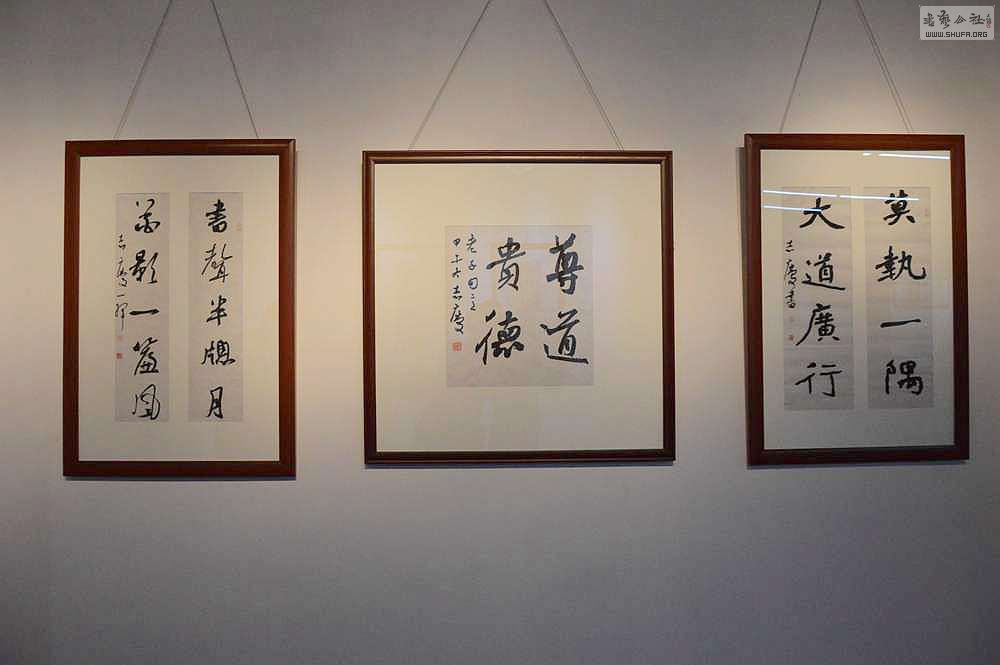 書聲半牕月
影一簾風
志慶
尊道
貴德
老子句
甲午 志慶
莫執一隅
大道廣行
志慶書
書藝公社
WWW.SHUFA.ORG